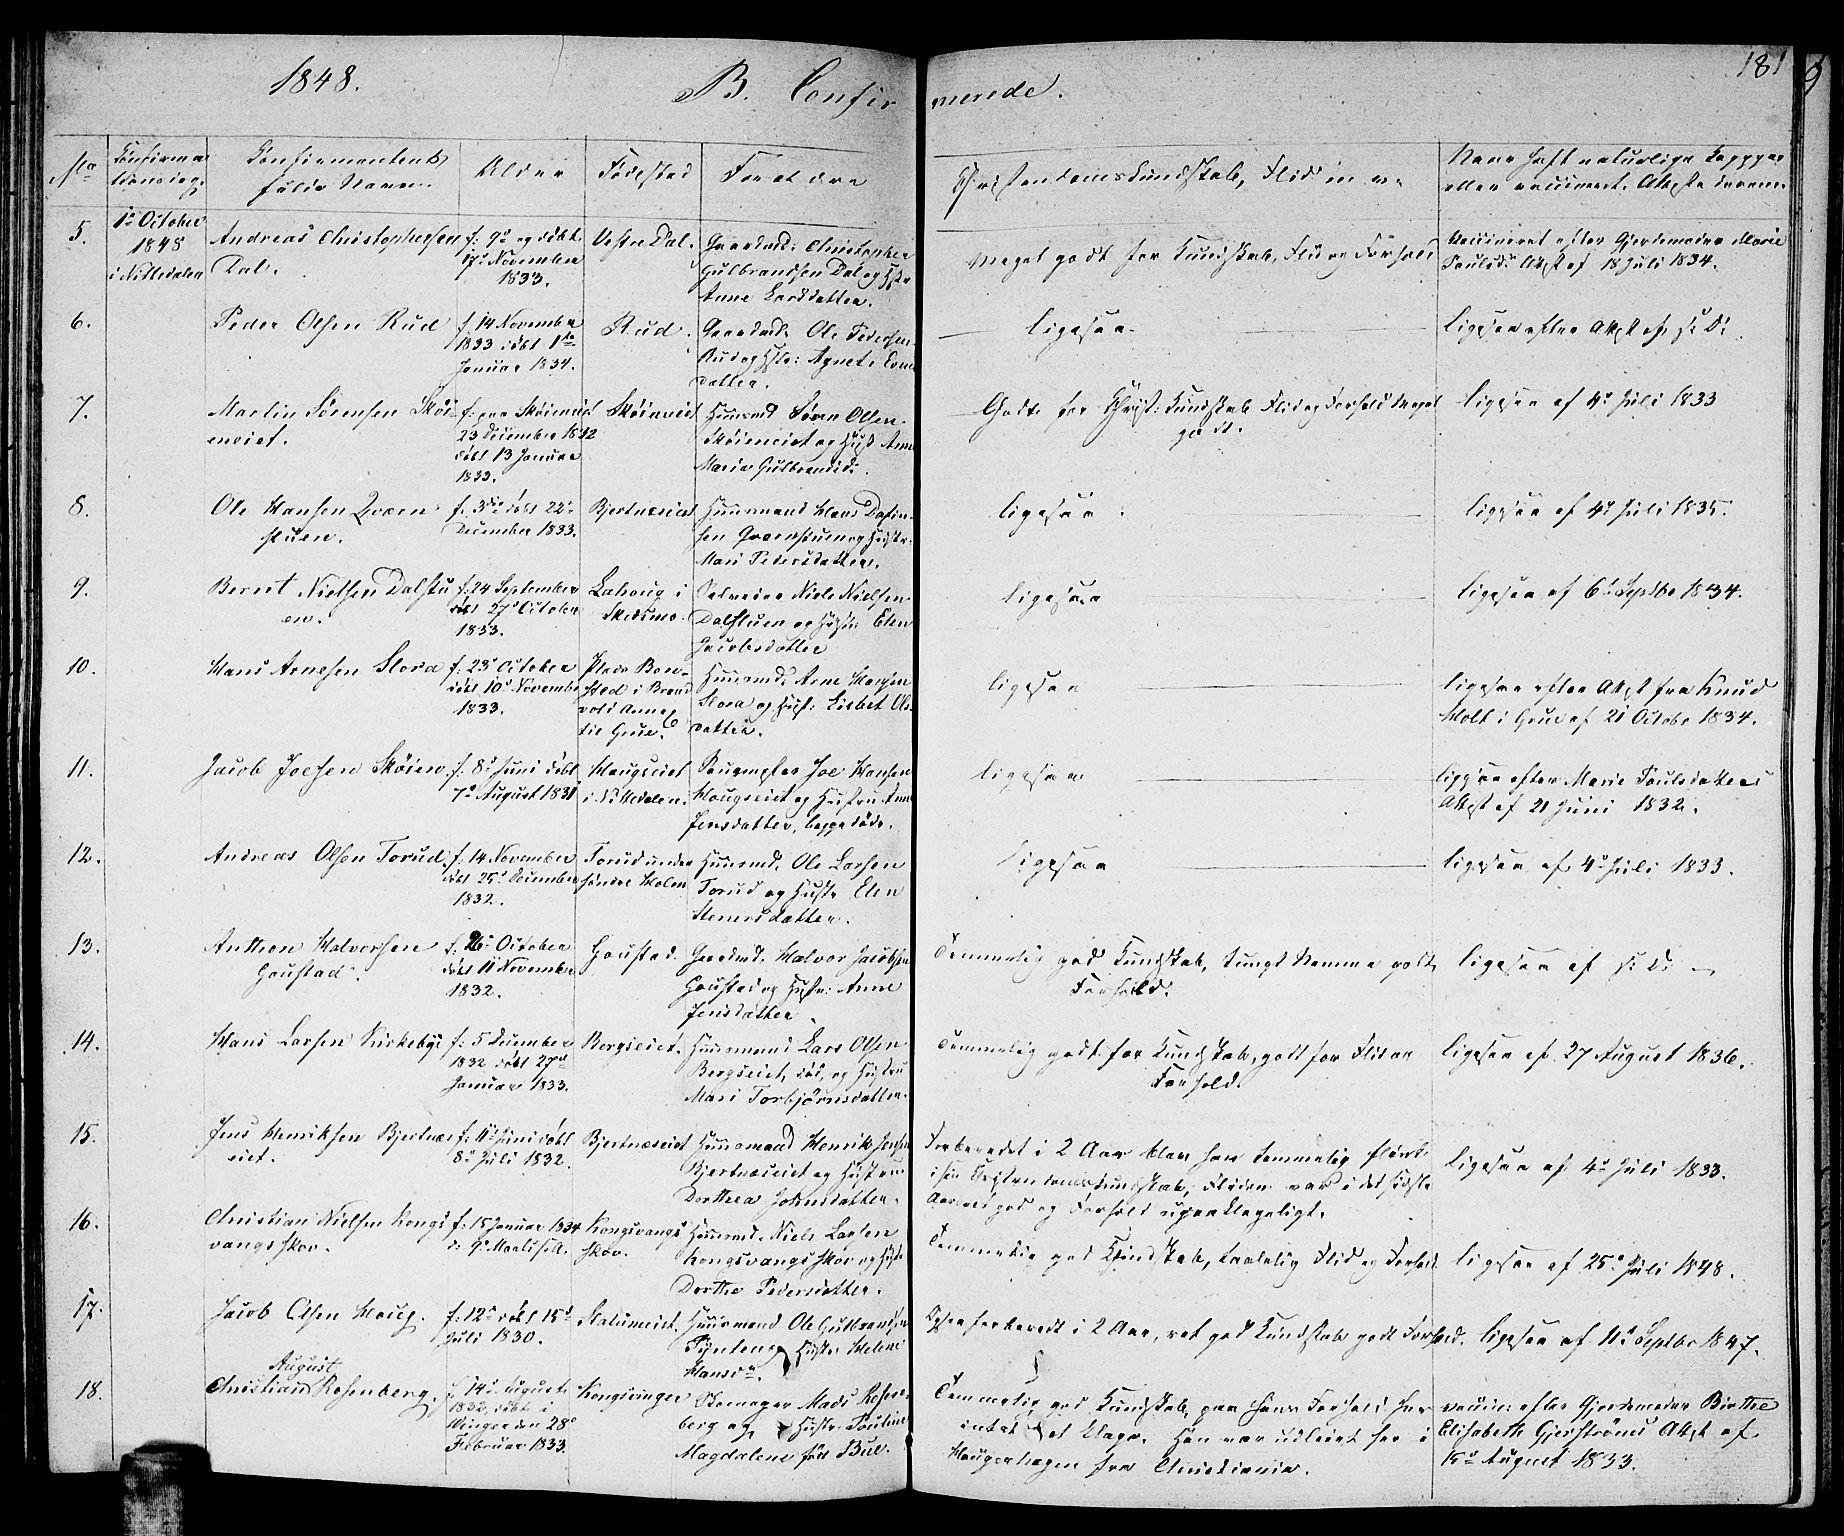 1848.
B. Confirmerede.
181
No
Confirmationsdag.
Confirmantens fulde Navn.
Alder
Fødested
Forældre
Christendomskundskab, Flid m. v.
Have haft naturlige Kopper eller vaccineret. Attester derom.
5.
1ste October
1848
i Nittedalen
Andreas Christophersen
Dal.
f. 9de og døbt
17de November
1833.
Vestre Dal.
Gaardmd. Christopher
Gulbrandsen Dal og Hstr
Anne Larsdatter.
Meget godt for Kundskab, Flid og Forhold
Vaccineret efter Gjordemoder Marie
Poulsd. Attest af 18 Juli 1834.
6.
Peder Olsen Rud
f. 14 November
1833 døbt 1ste
Januar 1834.
Rud.
Gaardmd. Ole Pedersen
Rud og Hstr: Agnete Even
datter.
ligesaa
ligesaa efter Attest af s. D.
7.
Martin Sørensen Skøi
eneiet.
f. paa Skøieneiet
23 December 1832
døbt 13 Januar
1833.
Skøieneiet
Huusmd Søren Olsen
Skøieneiet og Hust Anne
Maria Gulbrandsd.
Godt for Christ: Kundskab Flid og Forhold meget
godt.
ligesaa af 4de Juli 1833
8.
Ole Hansen Qværn
stuen.
f. 3die døbt 22de
December 1833.
Bjertnæseiet
Huusmand Hans Dafin-
sen Qværnstuen og Hustr.
Mari Pedersdatter.
ligesaa
ligesaa af 4de Juli 1835.
9.
Bernt Nielsen Dalstu
en.
f. 24 September
døbt 27de October
1833.
Lahaug i
Skedsmo.
Niels Nielsen
Dalstuen og Hustr Elen
Jacobsdatter
ligesaa
ligesaa af 6te Septbr 1834.
10.
Hans Arnesen Slora
f. 23de October
døbt 10de November
1833.
Plads Bon-
stad i Brand
vold Annex
til Grue.
Huusmd. Arne Hansen
Slora og Hust: Lisbet Ols
datter.
ligesaa
ligesaa efter Attest fra Knud
Holt i Grue af 21 Octobr 1834.
11.
Jacob Joesen Skøien
f. 8de Juni døbt
7de August 1831
Haugseiet
i Nittedalen.
Joe Hansen
Haugseiet og Hustru Anne
Jensdatter, begge døde.
ligesaa
ligesaa efter Marie Poulsdatters
Attest af 21 Juni 1832.
12.
Andreas Olsen Torud
f. 14 November
døbt 25de December
1832.
Torud under
søndre Holm
Huusmd. Ole Larsen
Torud og Hustr Elen
Stenersdatter.
ligesaa
ligesaa af 4de Juli 1833.
13.
Anthon Halvorsen
Goustad.
f. 26 October
døbt 11 November
1832.
Goustad.
Gaardmd. Halvor Jacobsen
Goustad og Hustr: Anne
Jensdatter.
Temmelig god Kundskab, tungt Nemme godt
Forhold.
ligesaa af s. D.
14.
Hans Larsen Kirkebye
f. 5 December
1832 døbt 27de
Januar 1833.
Bergseiet.
Huusmand Lars Olsen
Bergseiet, død, og Hustru
Mari Torbjørnsdatter.
Temmelig godt for Kundskab, godt for Flid og
Forhold.
ligesaa af 27 August 1836.
15.
Jens Henriksen Bjertnæs
eiet.
f. 11te Juni døbt
8de Juli 1832.
Bjertnæseiet
Huusmand Henrik Jensen
Bjertnæseiet og Hustru
Dorthea Johnsdatter.
Forberedet i 2 Aar blev han temmelig flink
i sin Christendomskundskab, Fliden var i det sidste
Aar god og Forhold upaaklageligt.
ligesaa af 4de Juli 1833.
16.
Christian Nielsen Kongs
vangsskov.
f. 15 Januar 1834
d. 9de Marts
Kongsvangs
skov.
Huusmd. Niels Larsen
Kongsvangsskov og Hustr
Dorthe Pedersdatter.
Temmelig god Kundskab, taalelig Flid og Forhold.
ligesaa af 25de Juli 1848.
17.
Jacob Olsen Houg.
f. 12te døbt 15de
Juli 1830.
Slatumeiet.
Huusmand Ole Gulbrandsen
og Hustr Helene
Hansdtr.
Ogsaa forberedt i 2 Aar, ret god Kundskab godt Forhold.
ligesaa af 11te Septbr 1847.
18.
August
Christian Rosenberg.
f. 14de August
1832, døbt i
Winger den 28de
Februar 1833.
Kongsvinger
Skomager Mads Rosen-
berg og Hustr Pouline
Magdalene født Bul.
Temmelig god Kundskab, paa hans Forhold har
intet at klage. Han var udleiet her i
Haugerhagen fra Christiania.
vaccin: efter Gjordemoder Birthe
Elisabeth Gjerstrøms Attest af
15de August 1833.